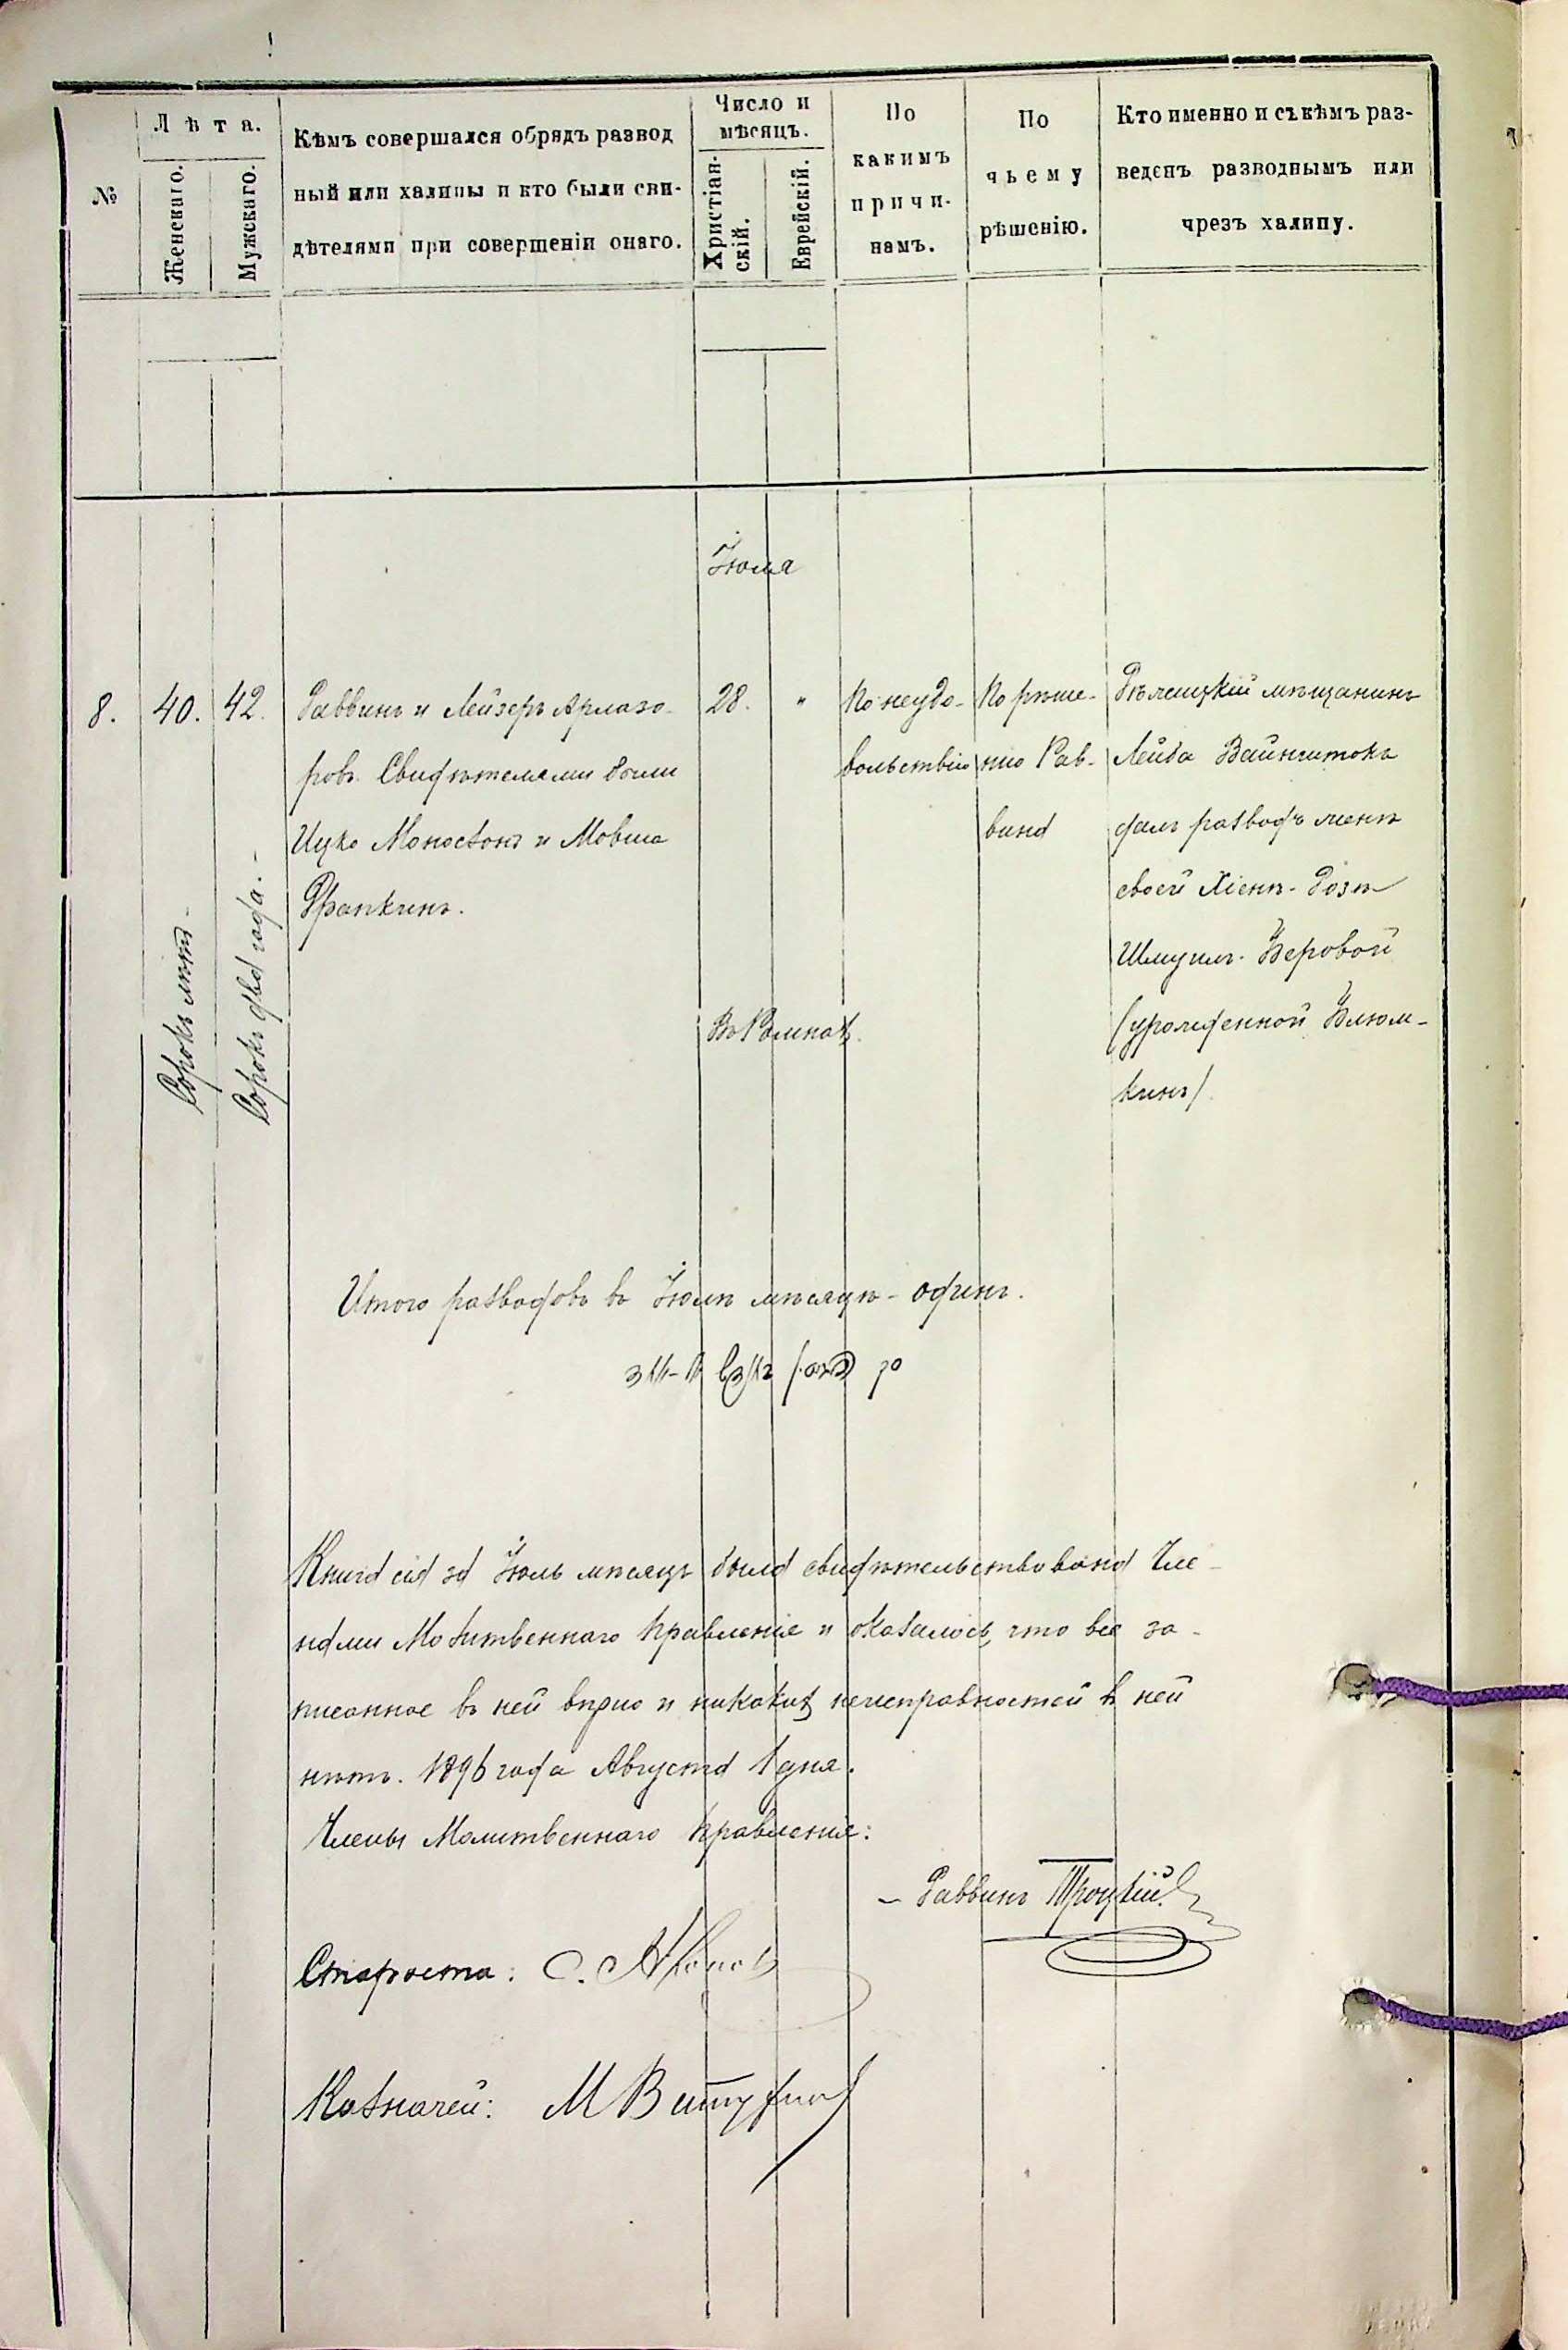 №
Лѣта.
Женскаго.
Мужскаго.
Кѣмъ совершался обрядъ развод
ный или халицы и кто были сви-
дѣтелями при совершеніи онаго.
Число и
мѣсяцъ.
Христіан-
скій.
Еврейскій.
По
какимъ
причи-
намъ.
По
чьему
рѣшенію.
Кто именно и съ кѣмъ раз-
веденъ разводнымъ или
чрезъ халицу.
Іюля
8.
40.
Сорокъ лѣтъ -
42.
Сорокъ два года. -
Раввинъ и Лейзеръ Арлазо-
ровъ. Свидѣтелями были
Ицко Моносзонъ и Мовша
Фрапкинъ.
28.
"
Въ Ромнахъ.
По неудо-
вольствію
По рѣше-
нію Рав-
вина
мѣщанинъ
Лейба Вайнштокъ
далъ разводъ женѣ
своей Хіенѣ-Розѣ
Шмуилъ-Беровой
(урожденной Блюм-
кинъ)
Итого разводовъ въ Іюлѣ мѣсяцѣ - одинъ.
Книга сія за Іюль мѣсяцъ была свидѣтельствована Чле-
нами Молитвеннаго Правленія и оказалось, что все за-
писанное въ ней вѣрно и никакихъ неисправностей въ ней
нѣтъ. 1896 года Августа 1 дня.
Члены Молитвеннаго Правленія:
- Раввинъ Троцкій.
Староста: С.
Казначей: М